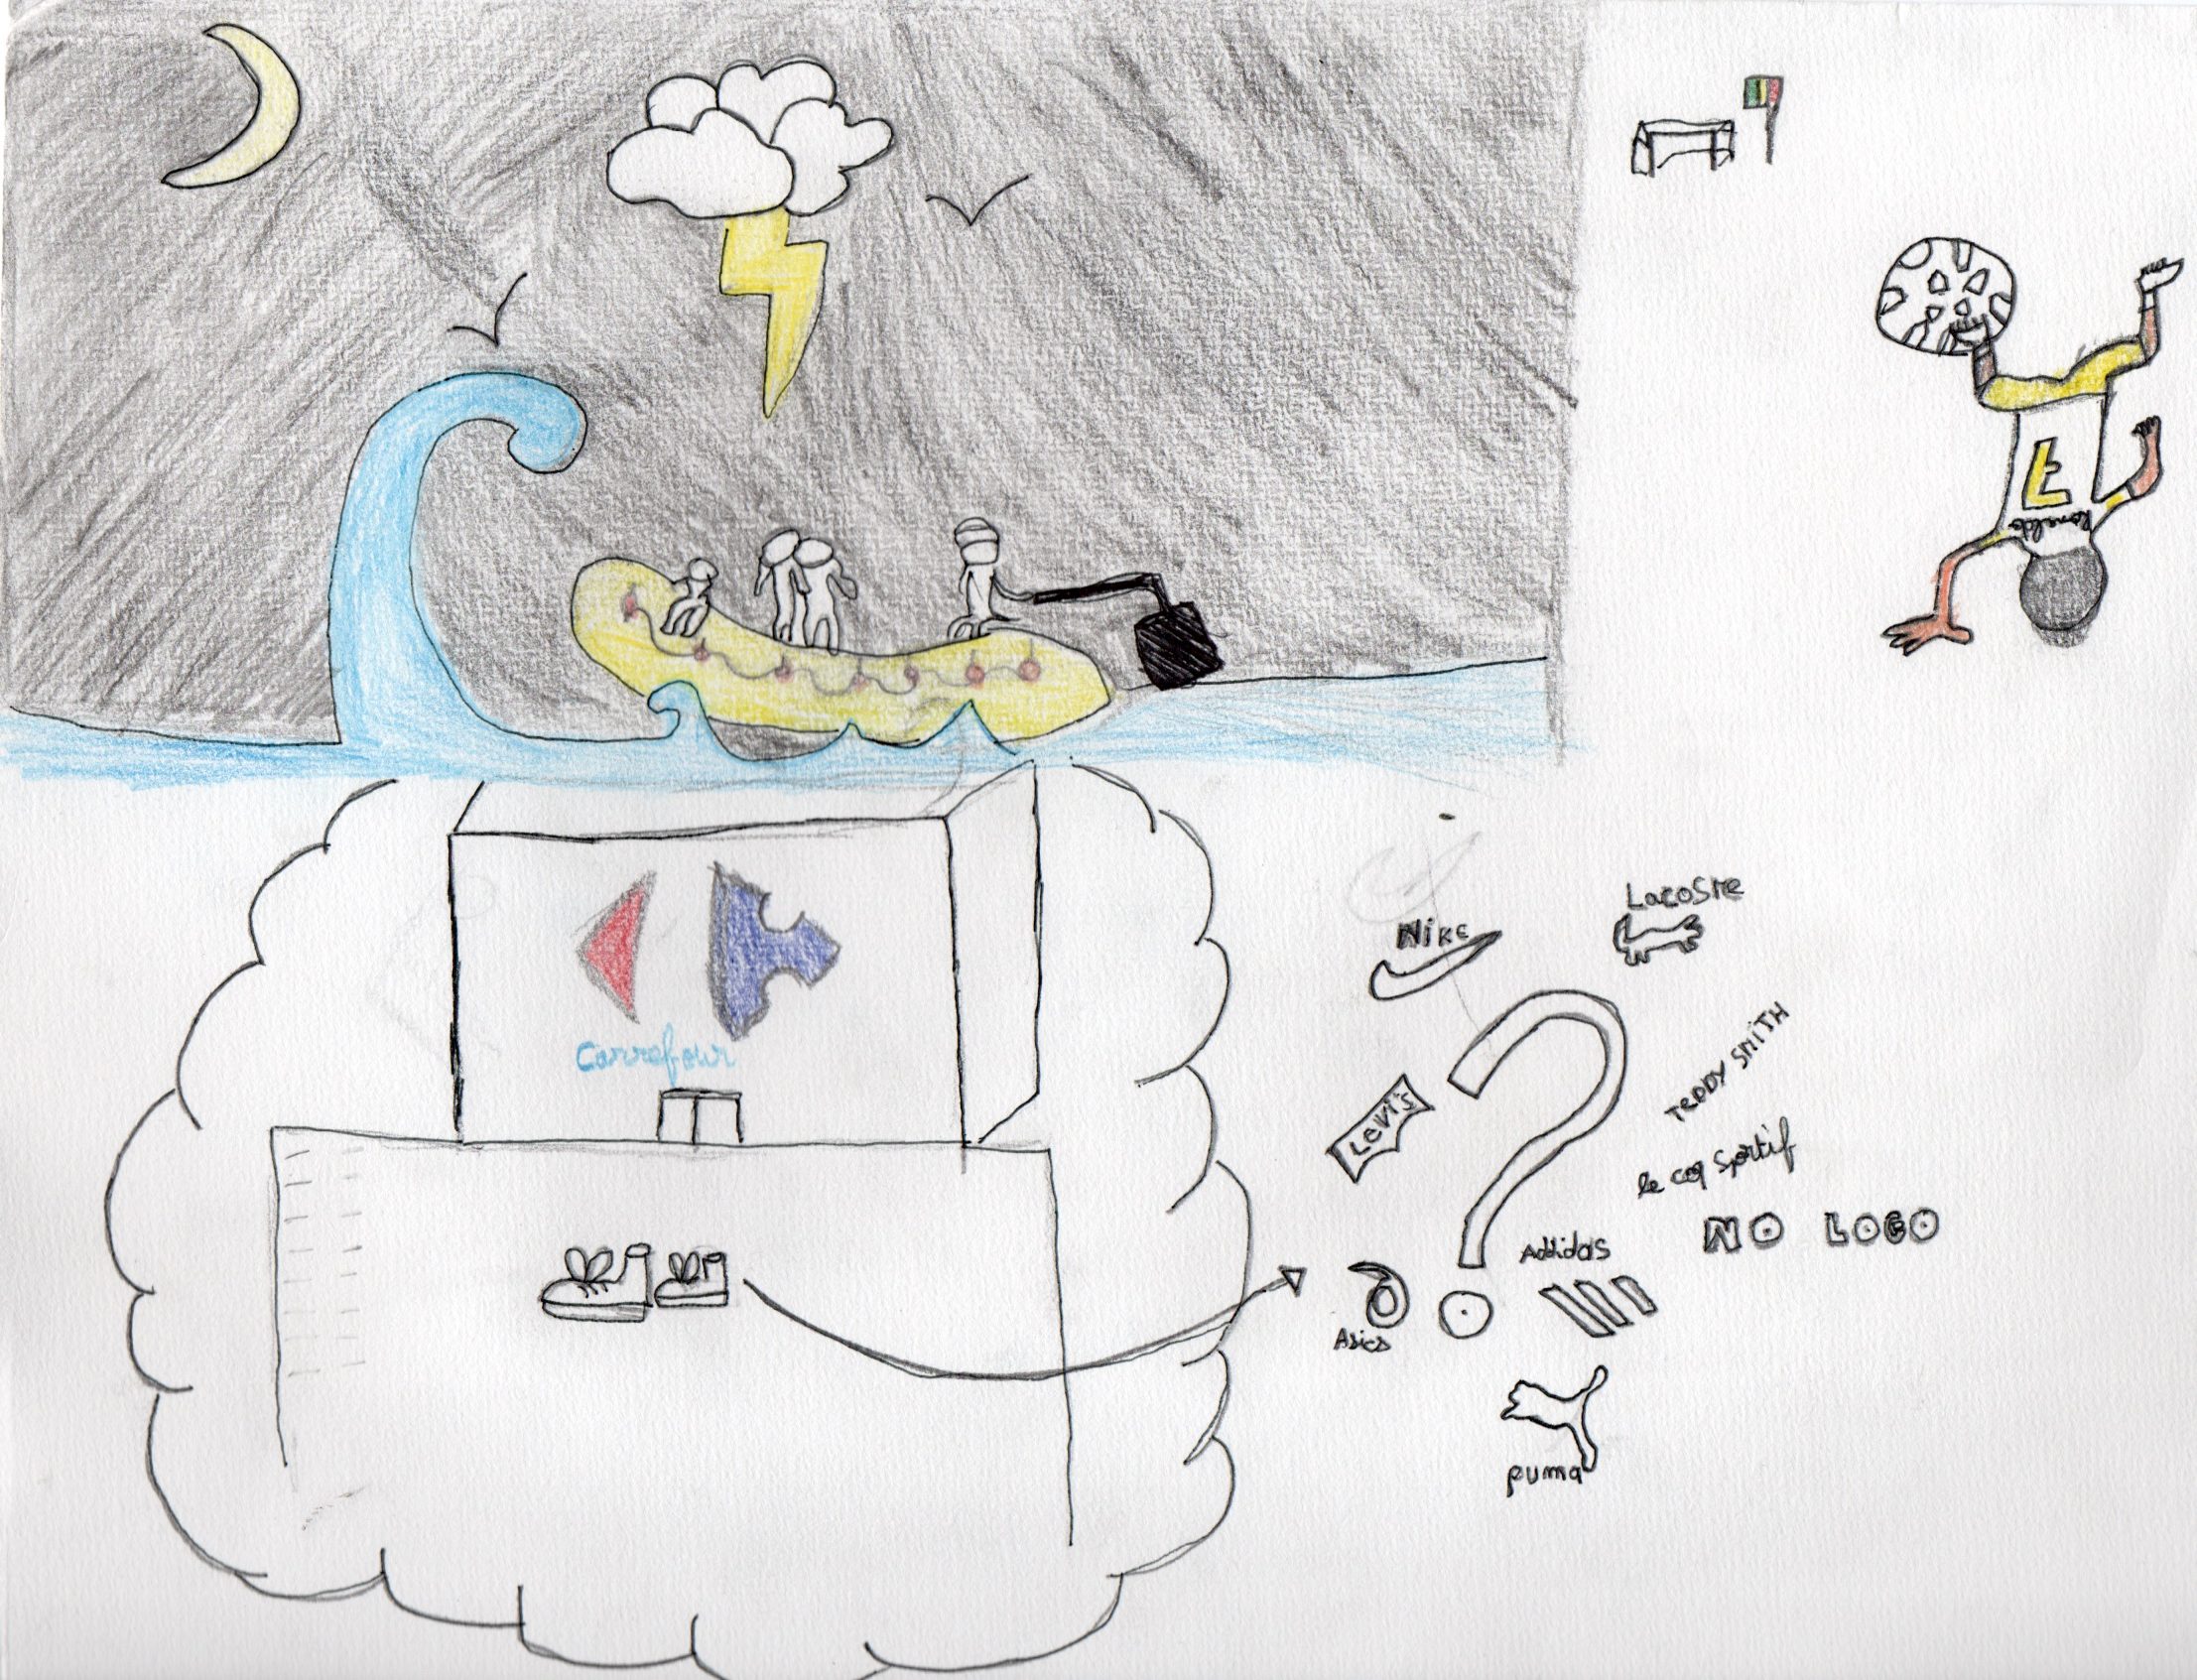 7
Ronaldo
Carrefour
Nike
Lacoste
Levi's
TEDDY SMITH
le coq sportif
NO LOGO
Addidas
Asics
puma